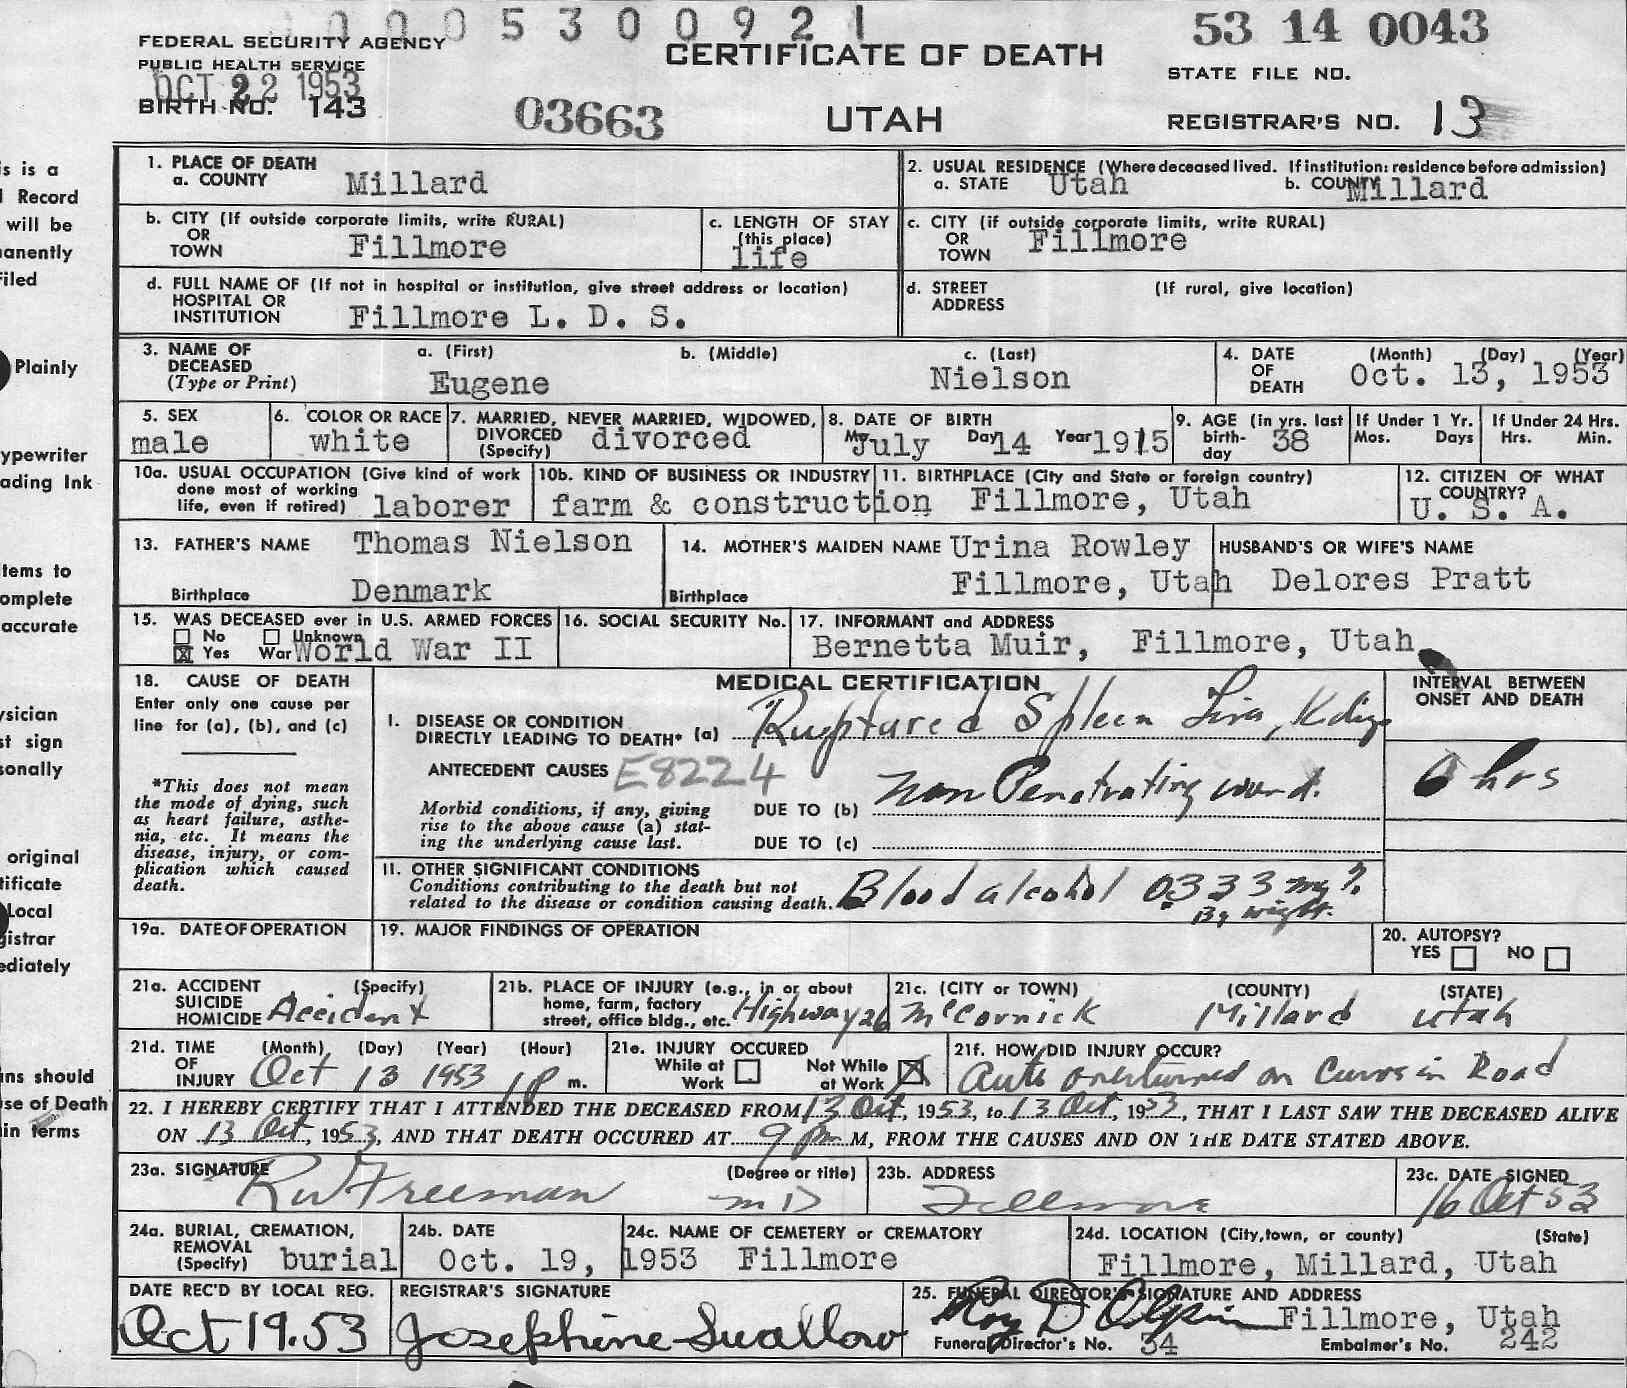 0005300921
53 14 0043
FEDERAL SECURITY AGENCY
PUBLIC HEALTH SERVICE
OCT 22 1953
BIRTH NO. 143
CERTIFICATE OF DEATH
STATE FILE NO.
03663
UTAH
REGISTRAR'S NO. 13
1. PLACE OF DEATH
a. COUNTY Millard
2. USUAL RESIDENCE (Where deceased lived. If institution: residence before admission)
a. STATE Utah b. COUNTY Millard
b. CITY (If outside corporate limits, write RURAL)
OR
TOWN Fillmore
c. LENGTH OF STAY
(this place)
life
c. CITY (if outside corporate limits, write RURAL)
OR
TOWN Fillmore
d. FULL NAME OF (If not in hospital or institution, give street address or location)
HOSPITAL OR
INSTITUTION Fillmore L. D. S.
d. STREET (If rural, give location)
ADDRESS
3. NAME OF
DECEASED
(Type or Print)
a. (First) b. (Middle) c. (Last)
Eugene Nielson
4. DATE OF DEATH (Month) (Day) (Year)
Oct. 13, 1953
5. SEX
male
6. COLOR OR RACE
white
7. MARRIED, NEVER MARRIED, WIDOWED,
DIVORCED
(Specify) divorced
8. DATE OF BIRTH
July Day 14 Year 1915
9. AGE (in yrs. last
birth-
day 38
If Under 1 Yr.
Mos. Days
If Under 24 Hrs.
Hrs. Min.
10a. USUAL OCCUPATION (Give kind of work
done most of working
life, even if retired) laborer
10b. KIND OF BUSINESS OR INDUSTRY
farm & construction
11. BIRTHPLACE (City and State or foreign country)
Fillmore, Utah
12. CITIZEN OF WHAT
COUNTRY?
U. S. A.
13. FATHER'S NAME Thomas Nielson
Birthplace Denmark
14. MOTHER'S MAIDEN NAME Urina Rowley
Birthplace Fillmore, Utah
HUSBAND'S OR WIFE'S NAME
Delores Pratt
15. WAS DECEASED ever in U.S. ARMED FORCES
No Unknown
Yes War World War II
16. SOCIAL SECURITY No.
17. INFORMANT and ADDRESS
Bernetta Muir, Fillmore, Utah
18. CAUSE OF DEATH
Enter only one cause per
line for (a), (b), and (c)
*This does not mean
the mode of dying, such
as heart failure, asthe-
nia, etc. It means the
disease, injury, or com-
plication which caused
death.
MEDICAL CERTIFICATION
INTERVAL BETWEEN
ONSET AND DEATH
I. DISEASE OR CONDITION
DIRECTLY LEADING TO DEATH* (a) Ruptured Spleen
ANTECEDENT CAUSES E8224
Morbid conditions, if any, giving
rise to the above cause (a) stat-
ing the underlying cause last.
DUE TO (b) non Penetrating wound.
6 hrs
DUE TO (c)
11. OTHER SIGNIFICANT CONDITIONS
Conditions contributing to the death but not
related to the disease or condition causing death. Blood alcohol 0.333 mg %
By weight.
19a. DATE OF OPERATION
19. MAJOR FINDINGS OF OPERATION
20. AUTOPSY?
YES NO
21a. ACCIDENT (Specify)
SUICIDE
HOMICIDE Accident
21b. PLACE OF INJURY (e.g., in or about
home, farm, factory
street, office bldg., etc. Highway 26
21c. (CITY or TOWN) (COUNTY) (STATE)
McCornick Millard Utah
21d. TIME (Month) (Day) (Year) (Hour)
OF
INJURY Oct 13 1953 1 p m.
21e. INJURY OCCURED
While at Work Not While at Work
21f. HOW DID INJURY OCCUR?
Auto overturned on Curve in Road
22. I HEREBY CERTIFY THAT I ATTENDED THE DECEASED FROM 13 Oct, 1953, to 13 Oct, 1953, THAT I LAST SAW THE DECEASED ALIVE
ON 13 Oct, 1953, AND THAT DEATH OCCURED AT 9 pm M, FROM THE CAUSES AND ON THE DATE STATED ABOVE.
23a. SIGNATURE (Degree or title)
RW Freeman MD
23b. ADDRESS
Fillmore
23c. DATE SIGNED
16 Oct 53
24a. BURIAL, CREMATION,
REMOVAL
(Specify) burial
24b. DATE
Oct. 19, 1953
24c. NAME OF CEMETERY or CREMATORY
Fillmore
24d. LOCATION (City, town, or county) (State)
Fillmore, Millard, Utah
DATE REC'D BY LOCAL REG.
Oct 19.53
REGISTRAR'S SIGNATURE
Josephine Swallow
25. FUNERAL DIRECTOR'S SIGNATURE AND ADDRESS
Roy D Olpin Fillmore, Utah
Funeral Director's No. 34 Embalmer's No. 242
is is a
Record
will be
anently
iled
Plainly
ypewriter
ading Ink
tems to
omplete
accurate
ysician
st sign
sonally
original
tificate
Local
gistrar
ediately
ns should
se of Death
in terms